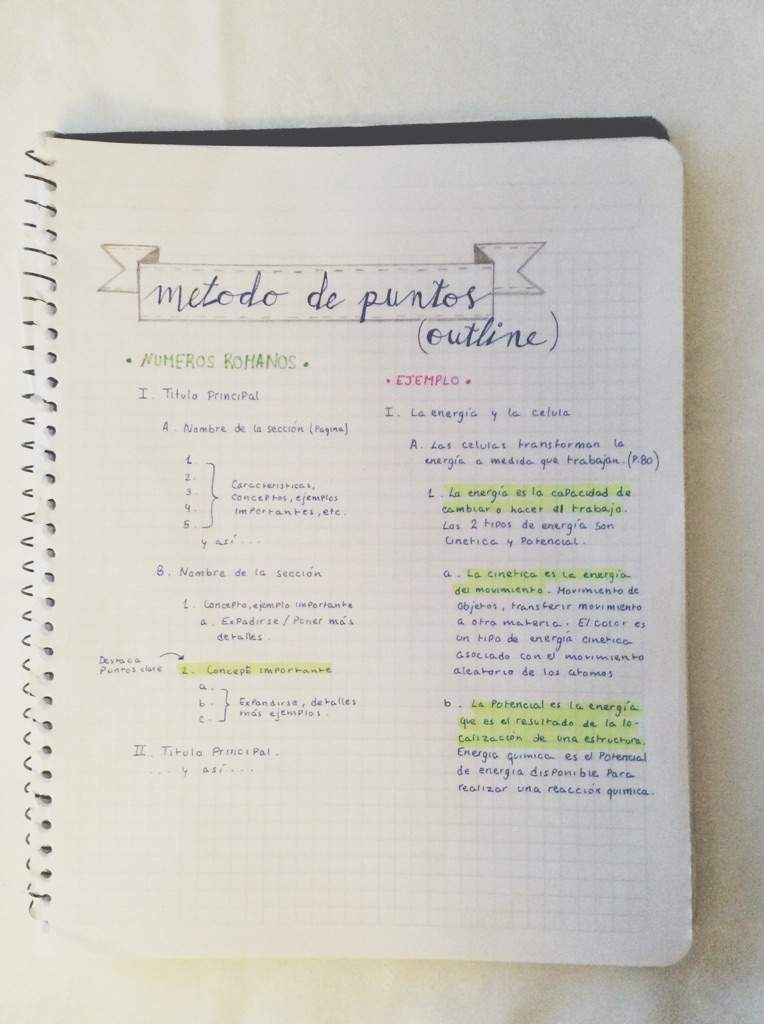 metodo de puntos
(outline)
• NUMEROS ROMANOS •
I. Titulo Principal
A. Nombre de la sección (Pagina)
1.
2.
3.
4.
5.
Caracteristicas,
conceptos, ejemplos
importantes, etc.
y así...
B. Nombre de la sección
1. Concepto, ejemplo importante
a. Expadirse / Poner más
detalles.
Destaca
Puntos clave
2. Concepto importante
a.
b.
c.
Expandirse, detalles
más ejemplos.
II. Titulo Principal.
... y así...
• EJEMPLO •
I. La energía y la celula
A. Las celulas transforman la
energía a medida que trabajan. (P.80)
1. La energía es la capacidad de
cambiar o hacer el trabajo.
Los 2 tipos de energía son
Cinetica y Potencial.
a. La cinetica es la energía
del movimiento. Movimiento de
objetos, transferir movimiento
a otra materia. El color es
un tipo de energía cinetica
asociado con el movimiento
aleatorio de los atomos
b. La Potencial es la energía
que es el resultado de la lo-
calización de una estructura.
Energia quimica es el Potencial
de energia disponible para
realizar una reacción quimica.